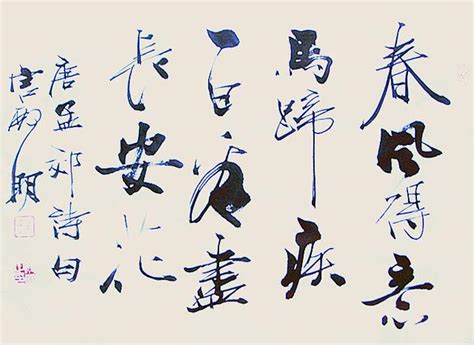 春風得意
馬蹄疾
一日看盡
長安花
唐孟郊詩句
明